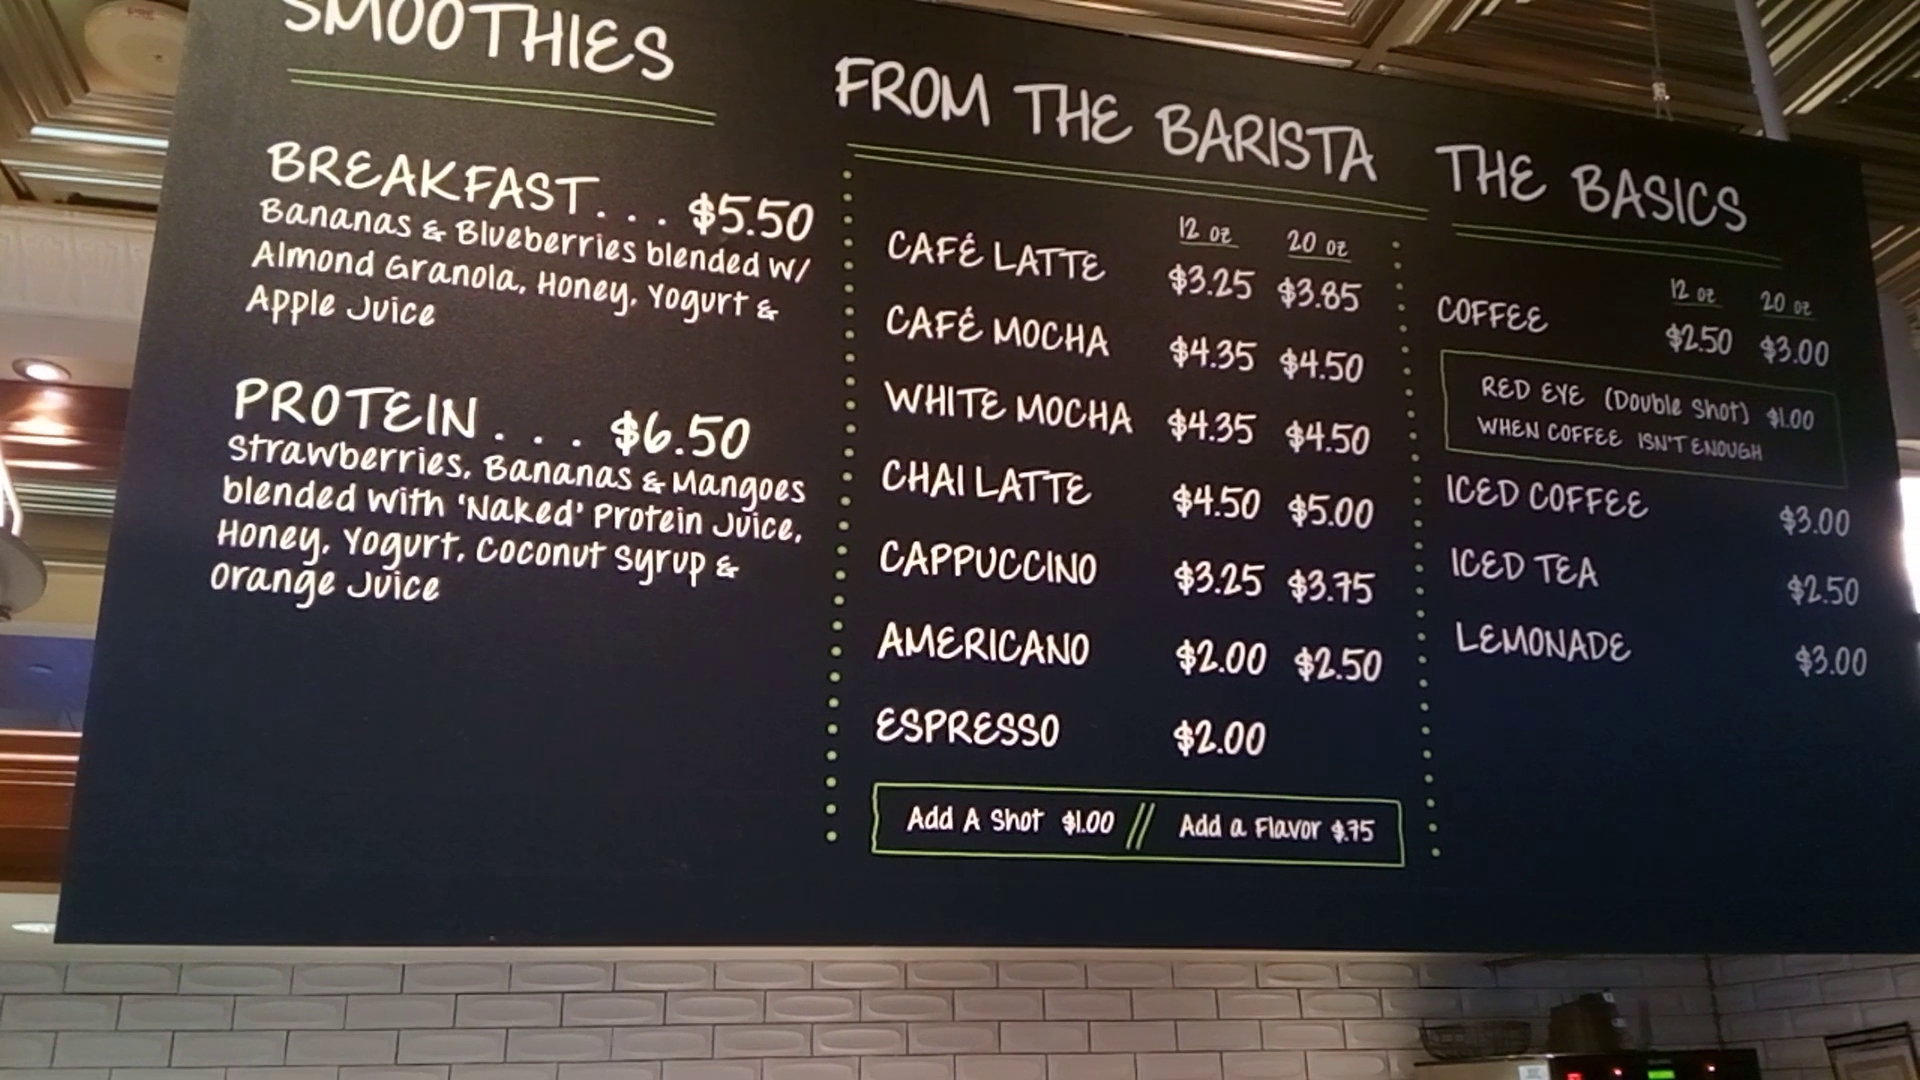 SMOOTHIES
BREAKFAST... $5.50
Bananas & Blueberries blended w/
Almond Granola, Honey, Yogurt &
Apple Juice
PROTEIN... $6.50
Strawberries, Bananas & Mangoes
blended with 'Naked' Protein Juice,
Honey, Yogurt, Coconut Syrup &
Orange Juice
FROM THE BARISTA
12 oz 20 oz
CAFÉ LATTE $3.25 $3.85
CAFÉ MOCHA $4.35 $4.50
WHITE MOCHA $4.35 $4.50
CHAI LATTE $4.50 $5.00
CAPPUCCINO $3.25 $3.75
AMERICANO $2.00 $2.50
ESPRESSO $2.00
Add A Shot $1.00 // Add a Flavor $.75
THE BASICS
12 oz 20 oz
COFFEE $2.50 $3.00
RED EYE (Double Shot) $1.00
WHEN COFFEE ISN'T ENOUGH
ICED COFFEE $3.00
ICED TEA $2.50
LEMONADE $3.00